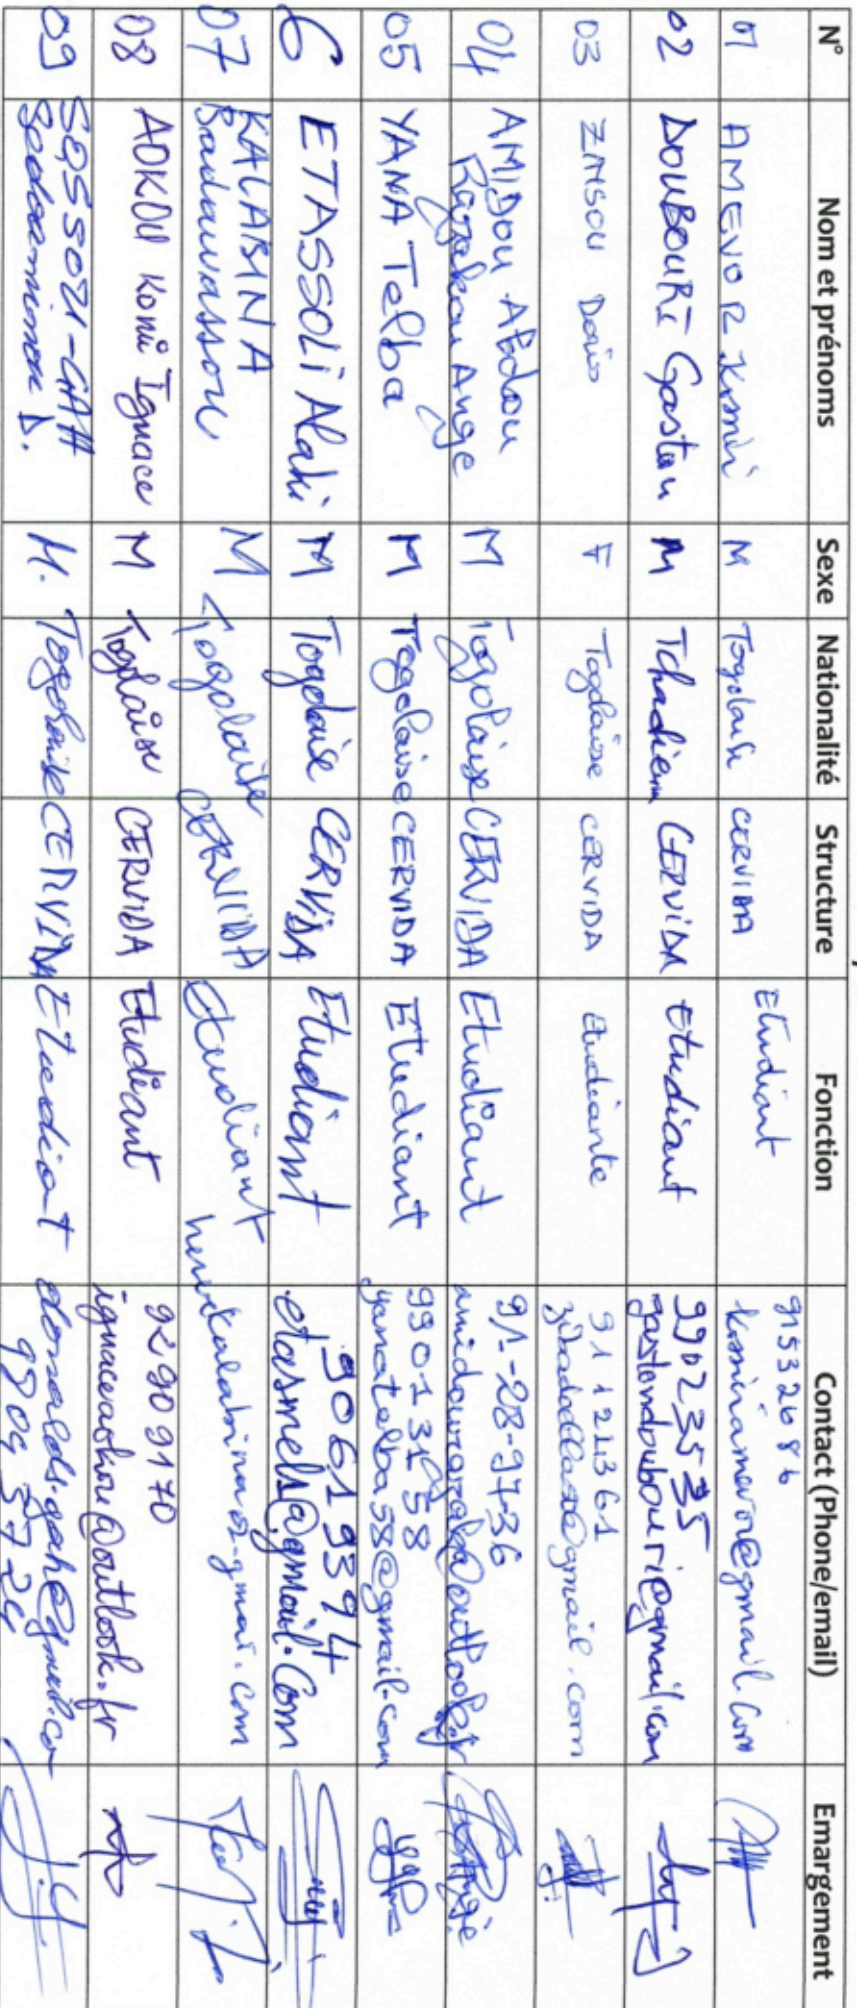 N° Nom et prénoms Sexe Nationalité Structure Fonction Contact (Phone/email) Emargement
01 AMEVOR Komi M Togolaise CERVIDA Etudiant 91532686
kominamevor@gmail.com
02 DOUBOURI Gaston M Tchadienne CERVIDA Etudiant 99023535
gastondoubouri@gmail.com
03 ZINSOU Davis F Togolaise CERVIDA Etudiante 91121361
@gmail.com
04 AMIDOU Abdou M Togolaise CERVIDA Etudiant 91-28-97-36
Razakou Ange
05 YANA Telba M Togolaise CERVIDA Etudiant 99013158
yanatelba58@gmail.com
6 ETASSOLI Alaki M Togolaise CERVIDA Etudiant 90619394
etasmels@gmail.com
07 KALABINA M Togolaise CERVIDA Etudiant
Badawassou
08 AOKOU Komi Ignace M Togolaise CERVIDA Etudiant 92909170
ignaceaokou@outlook.fr
09 SOSSOU-GAH M. Togolaise CERVIDA Etudiant
D.